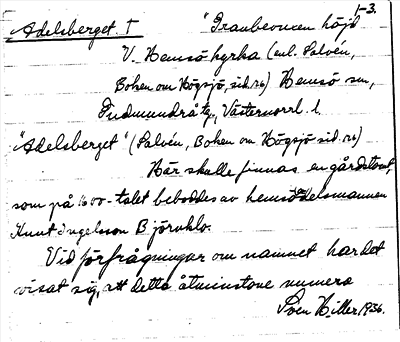 1-3.
Adelsberget. T "Graubouren höjd
V. Hemsö kyrka (enl. Salvén,
Boken om Högsjö, sid. 26) Hemsö sn,
Gudmundrå tg., Västernorrl. l.
"Adelsberget" (Salvén, Boken om Högsjö sid. 26)
Här skulle finnas en gårdstomt,
som på 1600-talet beboddes av hemsöadelsmannen
Knut Ingelsson Björnklo.
Vid förfrågningar om namnet har det
visat sig, att detta åtminstone numera
Sven Hiller 1936.